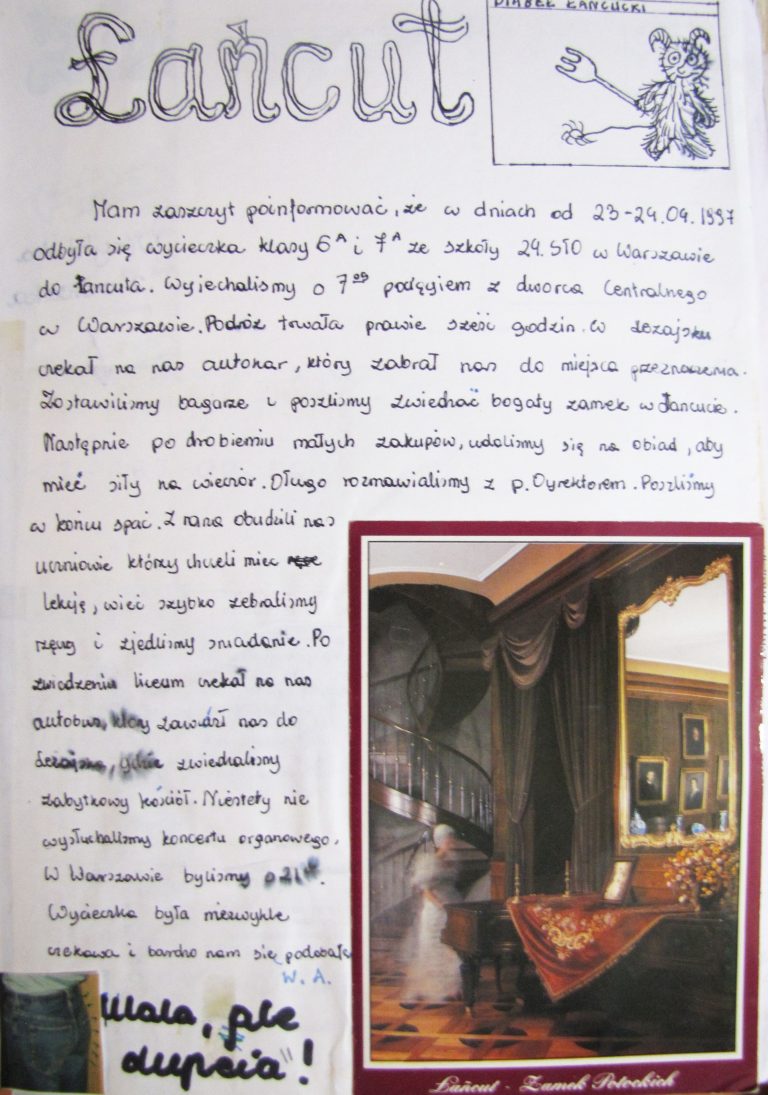 Łańcut
DIABEŁ ŁAŃCUCKI
Mam zaszczyt poinformować, że w dniach od 23-24.04.1997
odbyła się wycieczka klasy 6A i 7A ze szkoły 24. STO w Warszawie
do Łańcuta. Wyjechaliśmy o 7 00 pociągiem z dworca Centralnego
w Warszawie. Podróż trwała prawie sześć godzin. W Leżajsku
czekał na nas autokar, który zabrał nas do miejsca przeznaczenia.
Zostawiliśmy bagarze i poszliśmy zwiedzać bogaty zamek w Łańcucie.
Następnie po drobieniu małych zakupów, udaliśmy się na obiad, aby
mieć siły na wieczór. Długo rozmawialiśmy z p. Dyrektorem. Poszliśmy
w końcu spać. Z rana obudzili nas
uczniowie którzy chcieli miec
lekcję, wieć szybko zebraliśmy
rzeczy i zjedliśmy sniadanie. Po
zwiedzeniu liceum czekał na nas
autobus, który zawiózł nas do
Leżajska, gdzie zwiedzaliśmy
zabytkowy kościół. Niestety nie
wysłuchaliśmy koncertu organowego.
W Warszawie byliśmy o 21
Wycieczka była niezwykle
ciekawa i bardzo nam się podobała
W. A.
Mała, ple
dupcia"!
Łańcut - Zamek Potockich